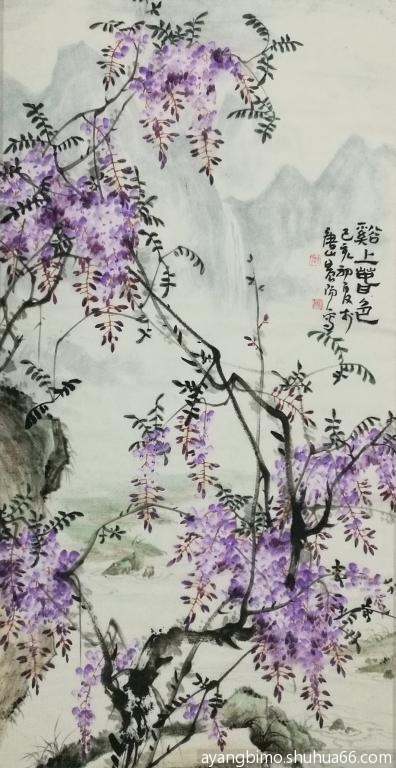 谿上春色
己亥初夏於
唐山晨阳写
ayangbimo.shuhua66.com